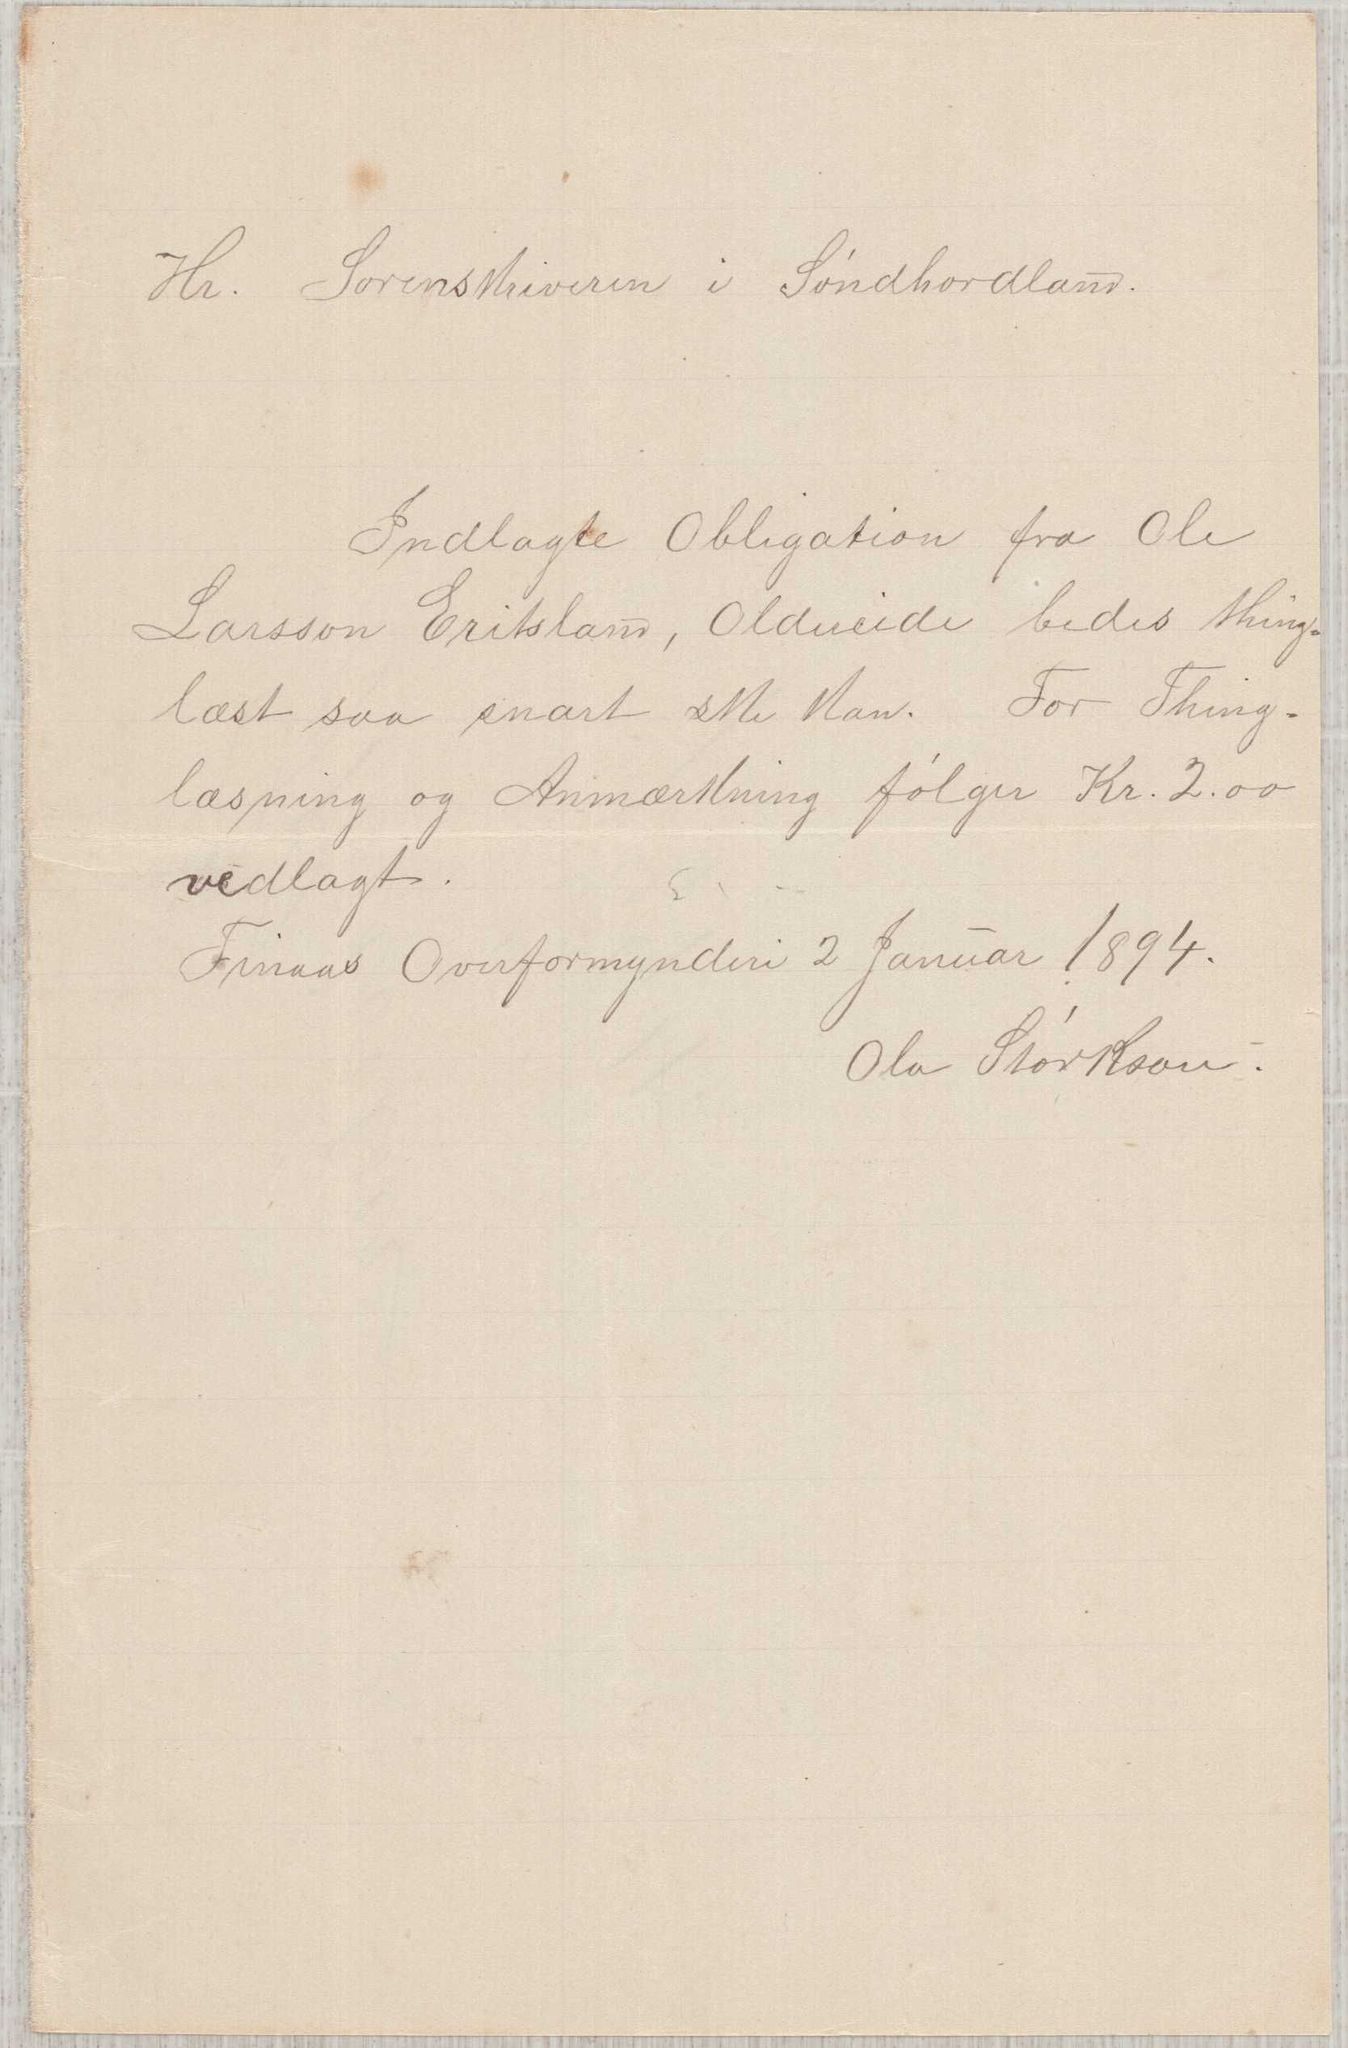 Hr. Sorenskriveren i Söndhordland.
Indlagte Obligation fra Ole
Larsson Eritsland, Oldereide bedes thing-
læst saa snart ske kan. For Thing-
læsning og Anmærkning fölger Kr. 2.00
vedlagt.
Finaas Overformynderi 2 Januar 1894.
Ola Störkson.